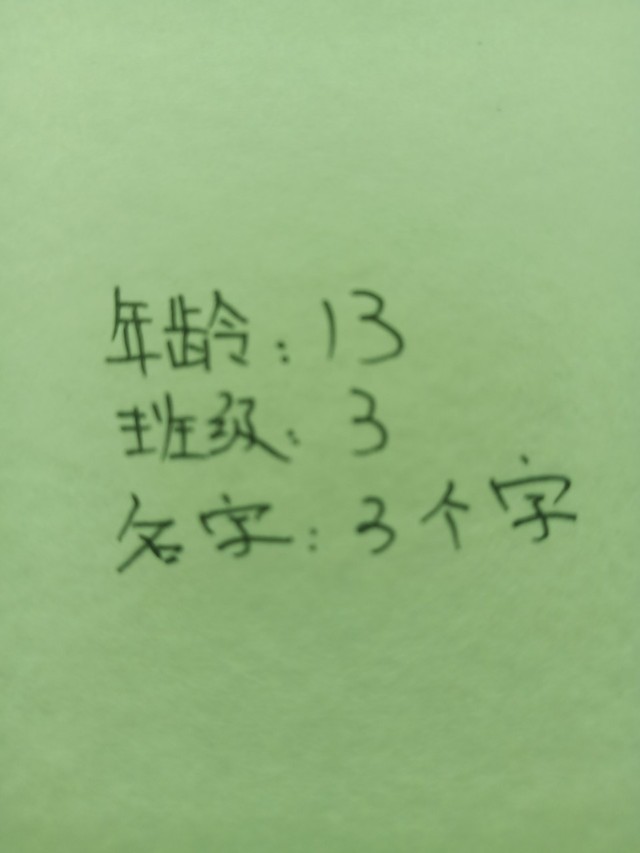 年龄：13
班级：3
名字：3个字